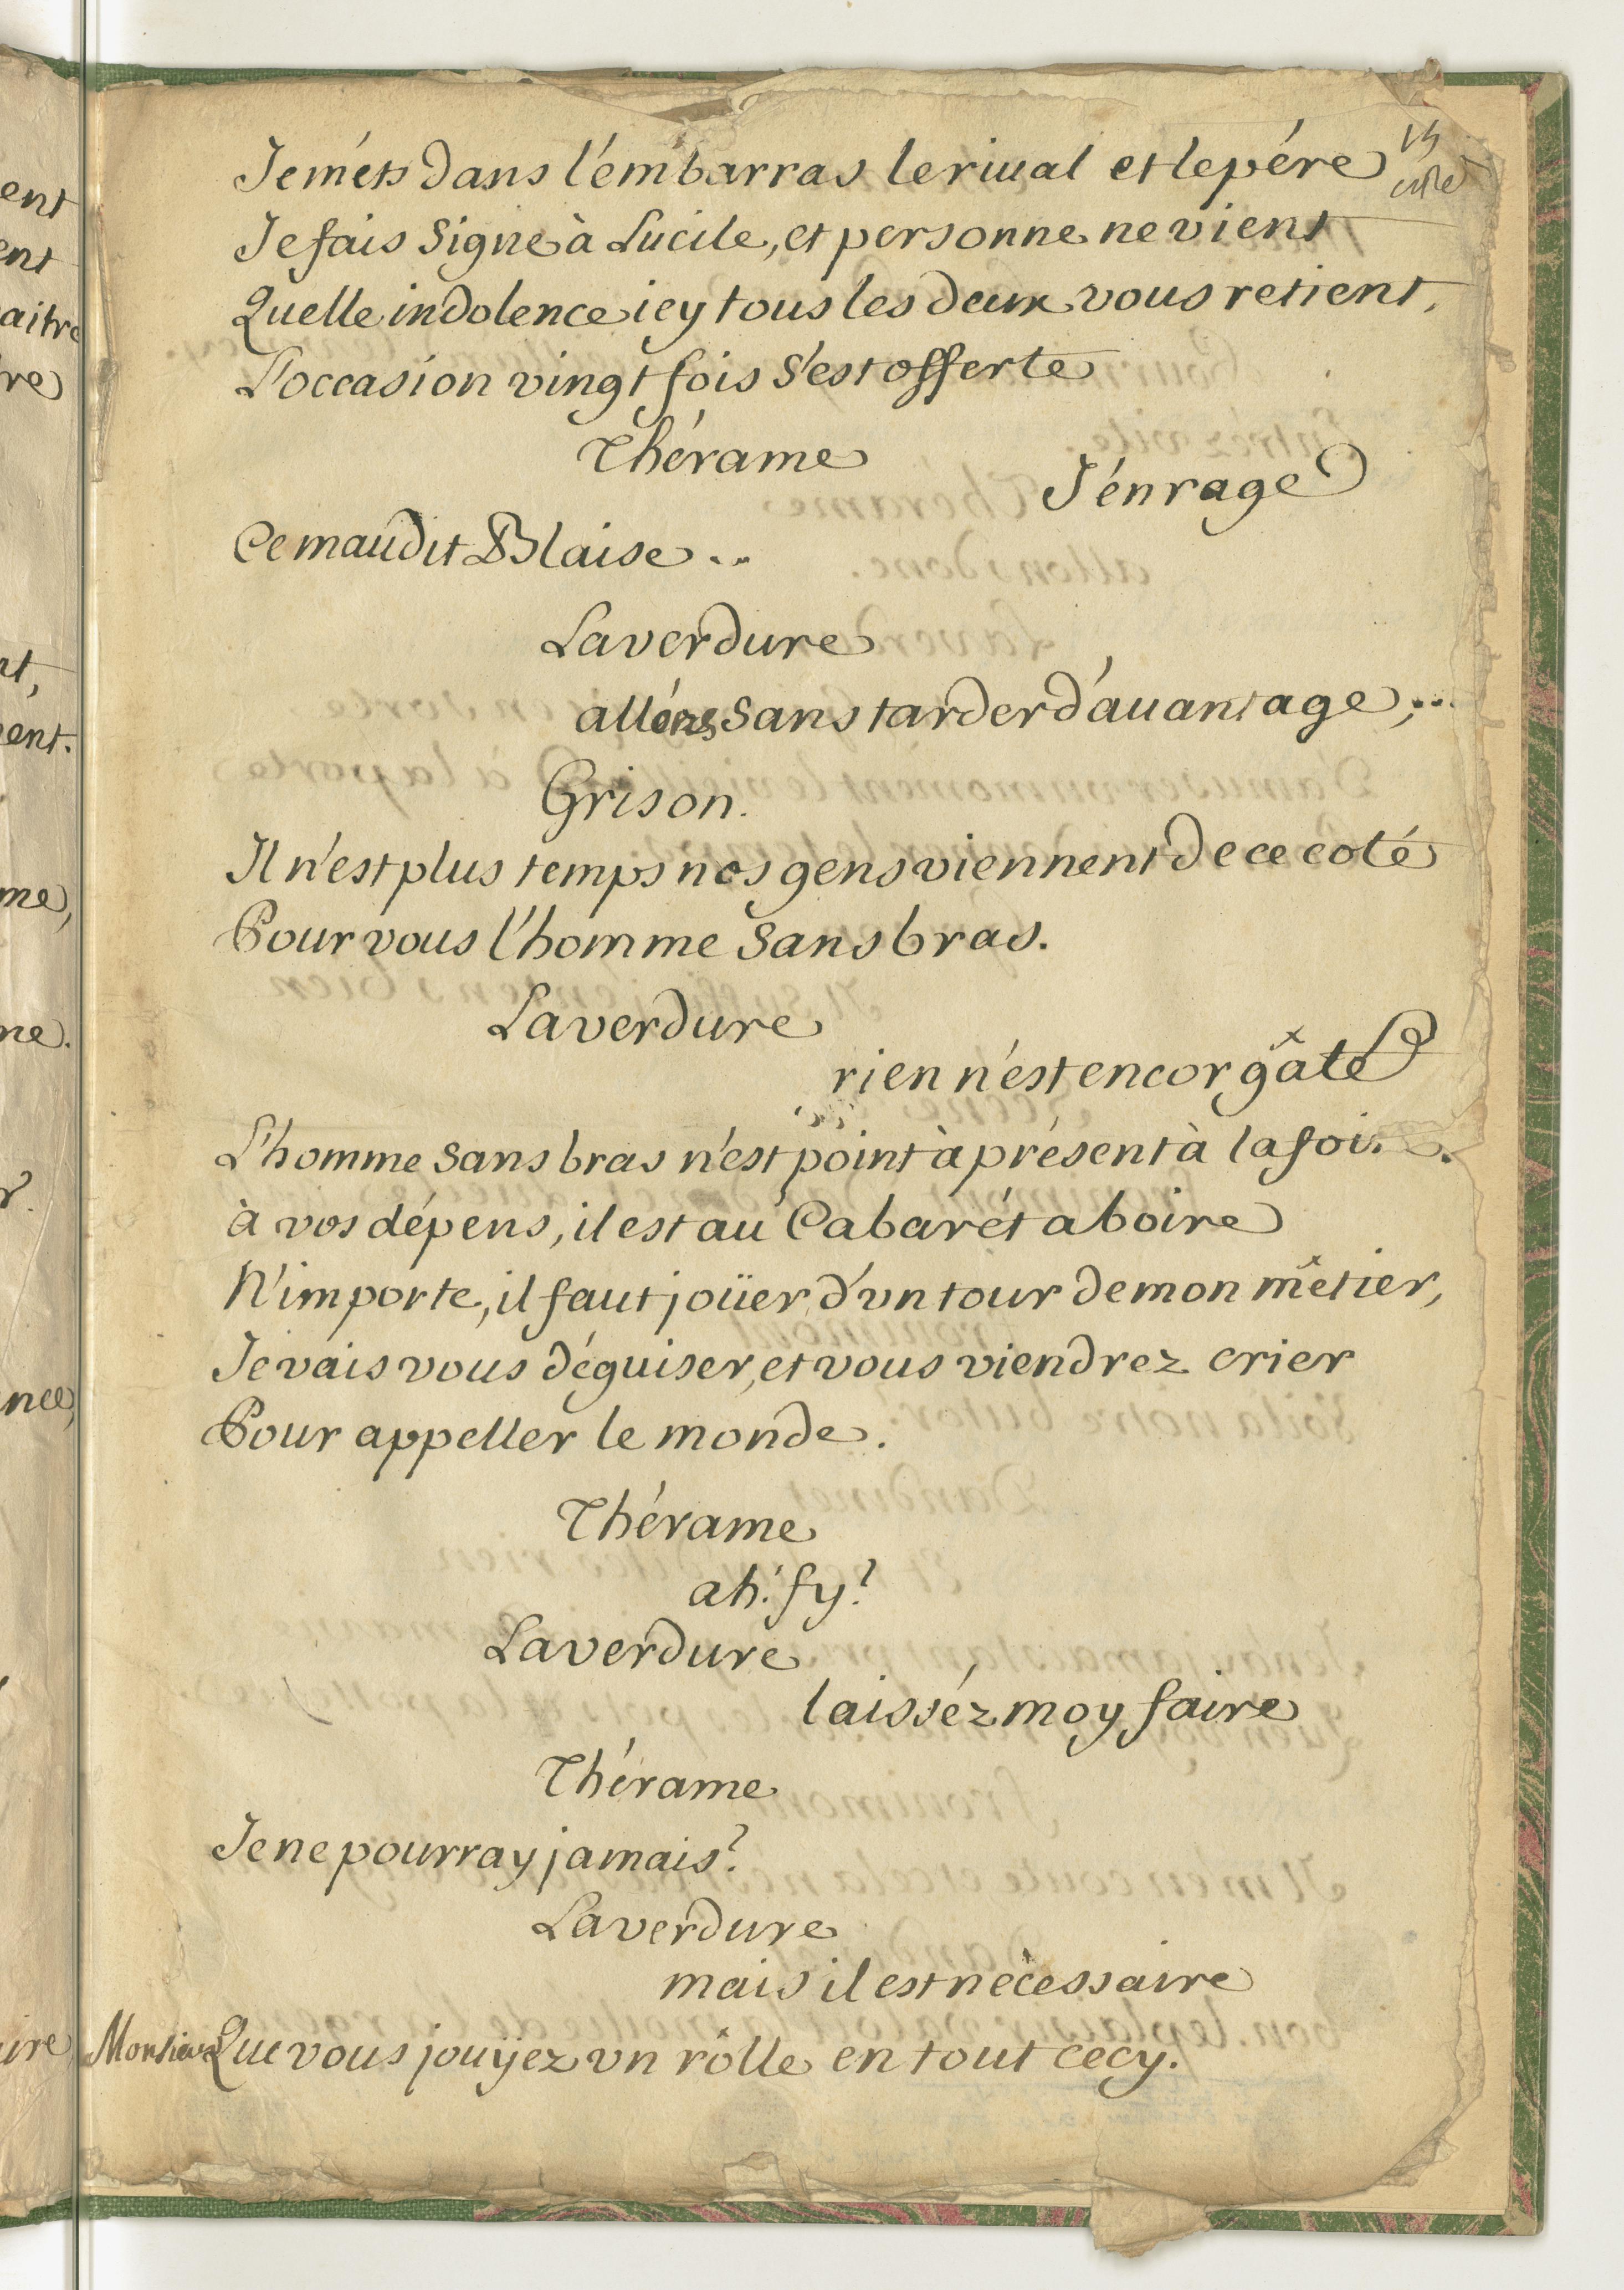 Je méts dans l'émbarras le riual et le pére
Je fais Signe à Lucile, et personne ne vient
Quelle indolence icy tous les deux vous retient,
L'occasion vingt fois s'est offerte
Thérame
J'énrage
Ce maudit Blaise...
Laverdure
allons, sans tarder d'áuantage,...
Grison.
Il n'est plus temps nos gens viennent de ce coté
Pour vous l'homme sans bras.
Laverdure
rien n'ést encor gâté
L'homme sans bras n'est point à présent à la foi
à vos dépens, il est au Cabarét a boire
N'importe, il faut joüer d'vn tour de mon métier,
Je vais vous déguiser, et vous viendrez crier
Pour appeller le monde.
Thérame
ah! fy!
Laverdure
laisséz moy faire
Thérame
Je ne pourray jamais?
Laverdure
mais il est nécessaire
Monsieur Que vous jouÿez vn rôlle en tout cecy.